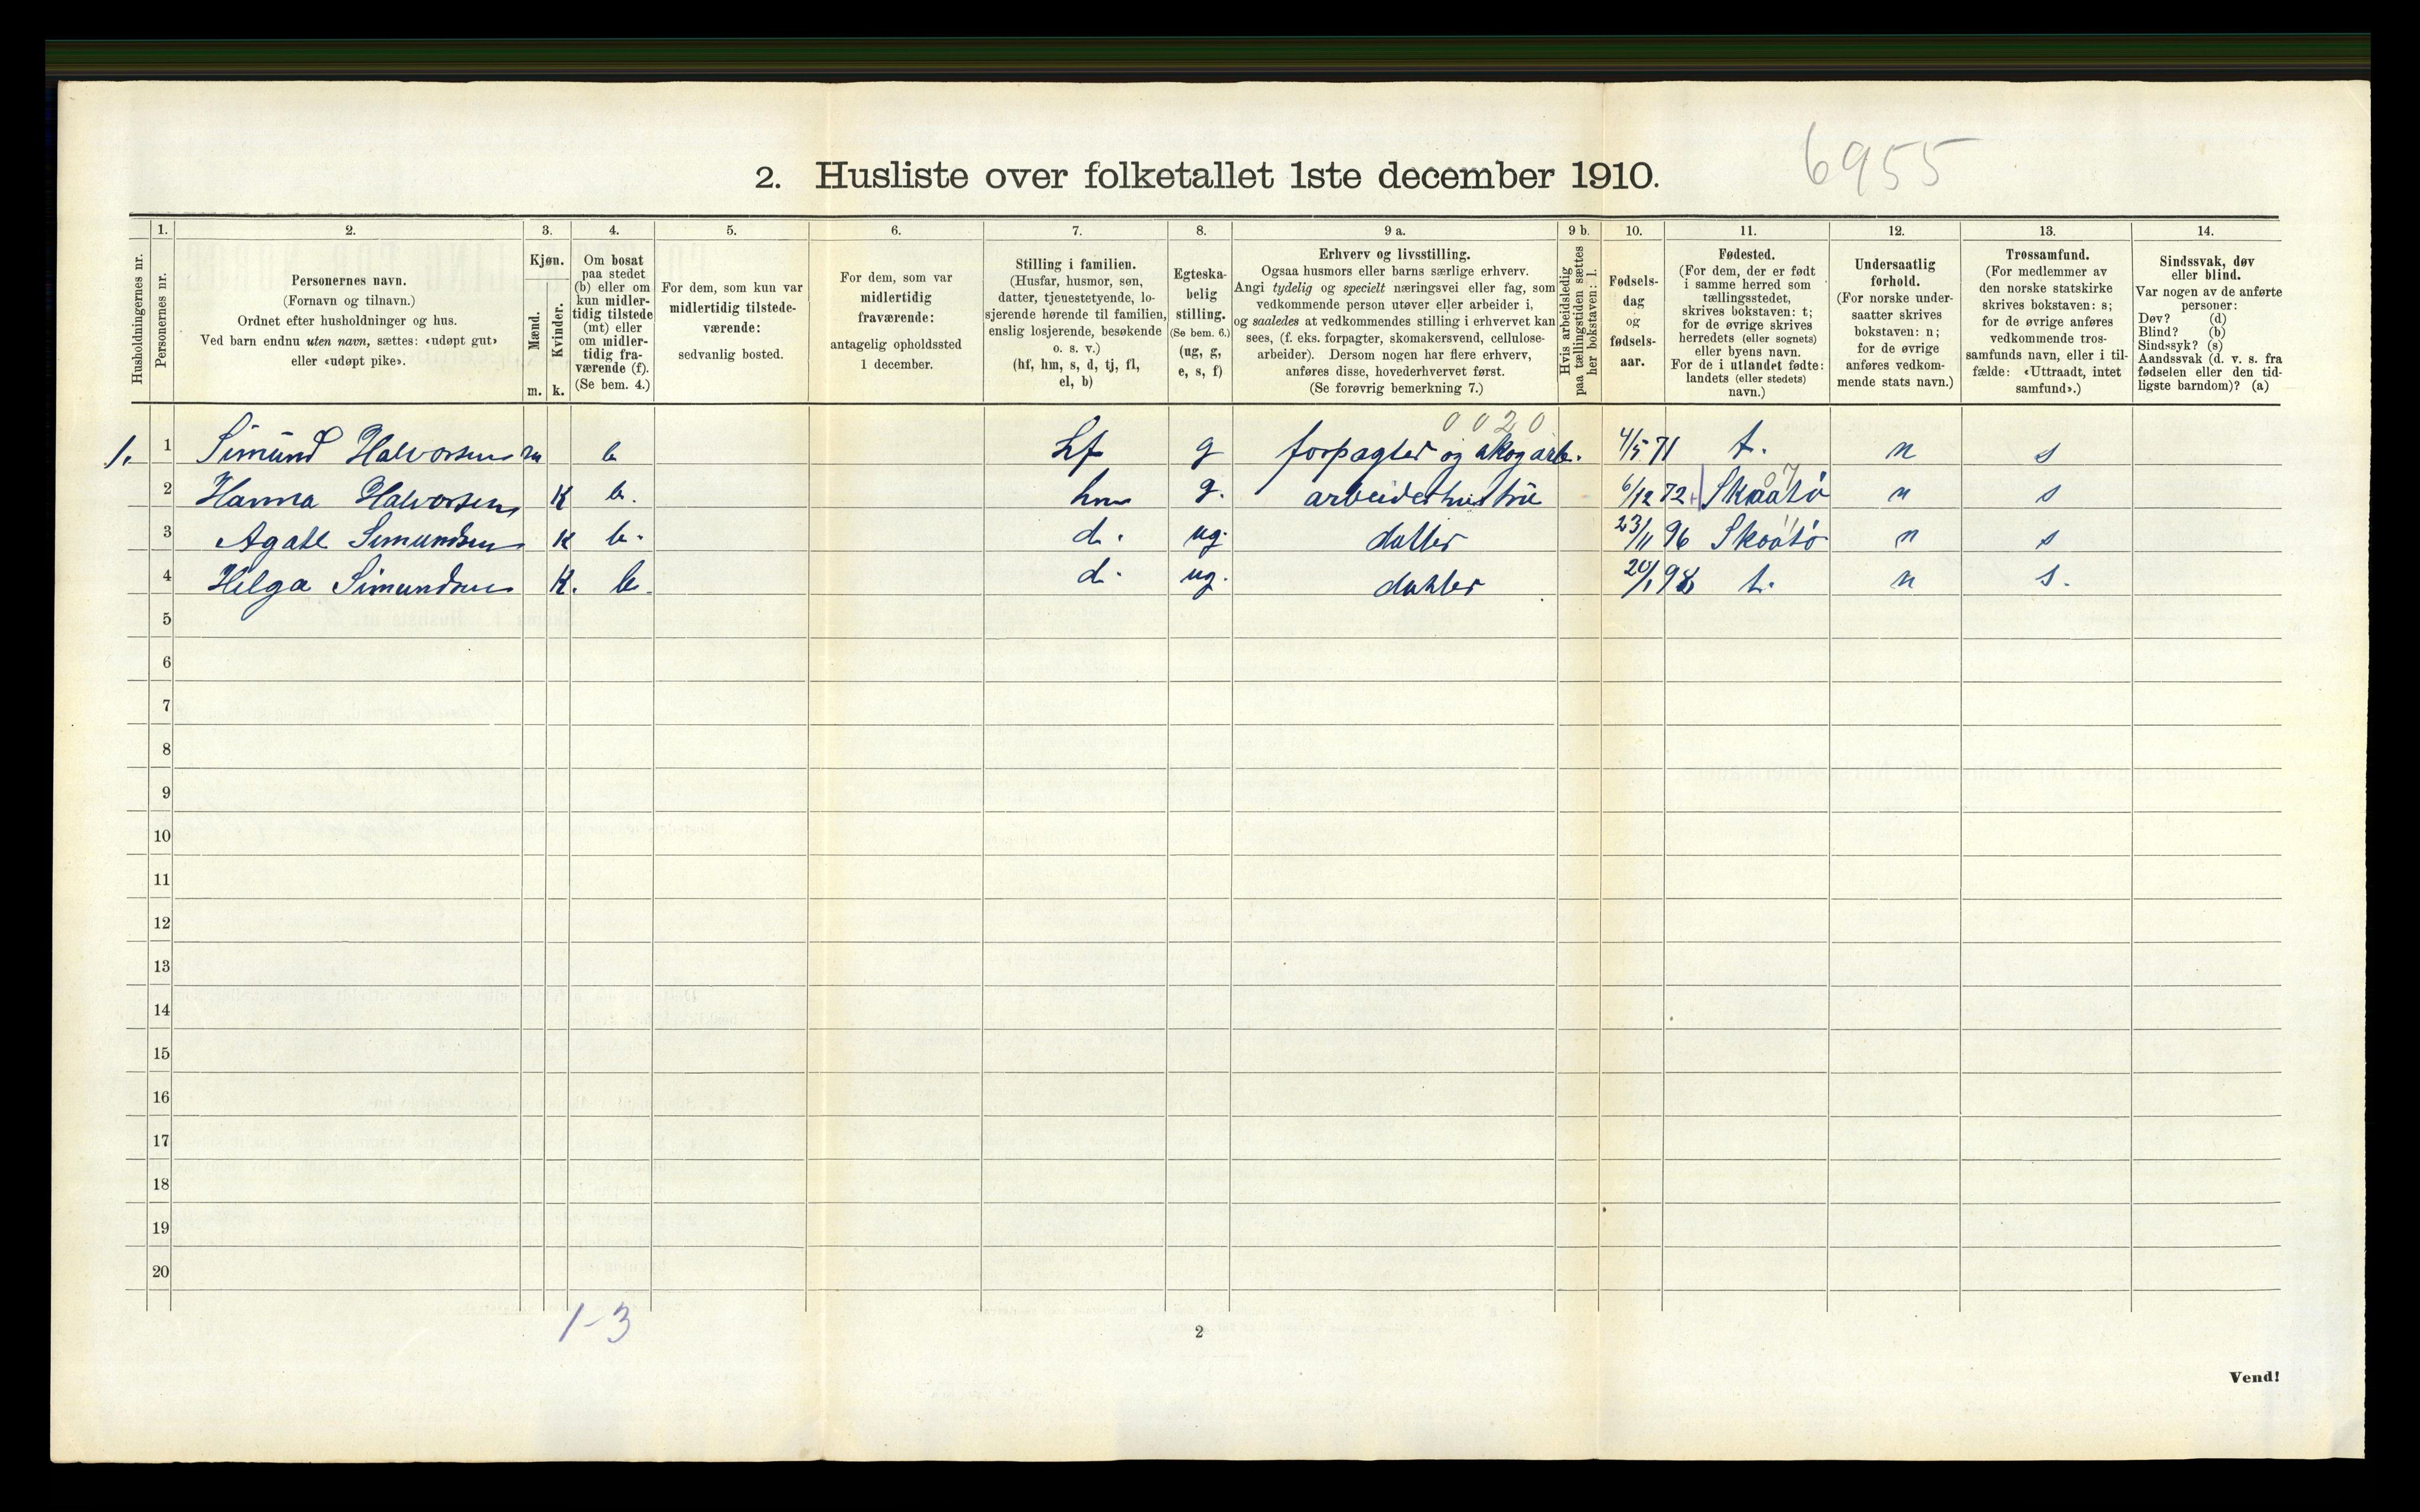 6955
2. Husliste over folketallet 1ste december 1910.
Husholdningernes nr.
1. Personernes nr.
2. Personernes navn.
(Fornavn og tilnavn.)
Ordnet efter husholdninger og hus.
Ved barn endnu uten navn, sættes: «udøpt gut»
eller «udøpt pike».
3. Kjøn.
Mænd. m.
Kvinder. k.
4. Om bosat
paa stedet
(b) eller om
kun midler-
tidig tilstede
(mt) eller
om midler-
tidig fra-
værende (f).
(Se bem. 4.)
5. For dem, som kun var
midlertidig tilstede-
værende:
sedvanlig bosted.
6. For dem, som var
midlertidig
fraværende:
antagelig opholdssted
1 december.
7. Stilling i familien.
(Husfar, husmor, søn,
datter, tjenestetyende, lo-
sjerende hørende til familien,
enslig losjerende, besøkende
o. s. v.)
(hf, hm, s, d, tj, fl,
el, b)
8. Egteska-
belig
stilling.
(Se bem. 6.)
(ug, g,
e, s, f)
9 a. Erhverv og livsstilling.
Ogsaa husmors eller barns særlige erhverv.
Angi tydelig og specielt næringsvei eller fag, som
vedkommende person utøver eller arbeider i,
og saaledes at vedkommendes stilling i erhvervet kan
sees, (f. eks. forpagter, skomakersvend, cellulose-
arbeider). Dersom nogen har flere erhverv,
anføres disse, hovederhvervet først.
(Se forøvrig bemerkning 7.)
9 b. Hvis arbeidsledig
paa tællingstiden sættes
her bokstaven: l.
10. Fødsels-
dag
og
fødsels-
aar.
11. Fødested.
(For dem, der er født
i samme herred som
tællingsstedet,
skrives bokstaven: t;
for de øvrige skrives
herredets (eller sognets)
eller byens navn.
For de i utlandet fødte:
landets (eller stedets)
navn.)
12. Undersaatlig
forhold.
(For norske under-
saatter skrives
bokstaven: n;
for de øvrige
anføres vedkom-
mende stats navn.)
13. Trossamfund.
(For medlemmer av
den norske statskirke
skrives bokstaven: s;
for de øvrige anføres
vedkommende tros-
samfunds navn, eller i til-
fælde: «Uttraadt, intet
samfund».)
14. Sindssvak, døv
eller blind.
Var nogen av de anførte
personer:
Døv? (d)
Blind? (b)
Sindssyk? (s)
Aandssvak (d. v. s. fra
fødselen eller den tid-
ligste barndom)? (a)
0 0 2 0
1. 1 Simund Halvorsen m b hf g forpagter og skogarb. 4/5 71 t. n s
2 Hanna Halvorsen K b. hm g. arbeiderhustru 6/12 72 Skaatö n s
3 Agate Simundsen K b. d. ug. datter 23/11 96 Skaatö n s
4 Helga Simundsen K. b. d. ug. datter 20/1 98 t. n s.
5
6
7
8
9
10
11
12
13
14
15
16
17
18
19
20
1-3
2
Vend!